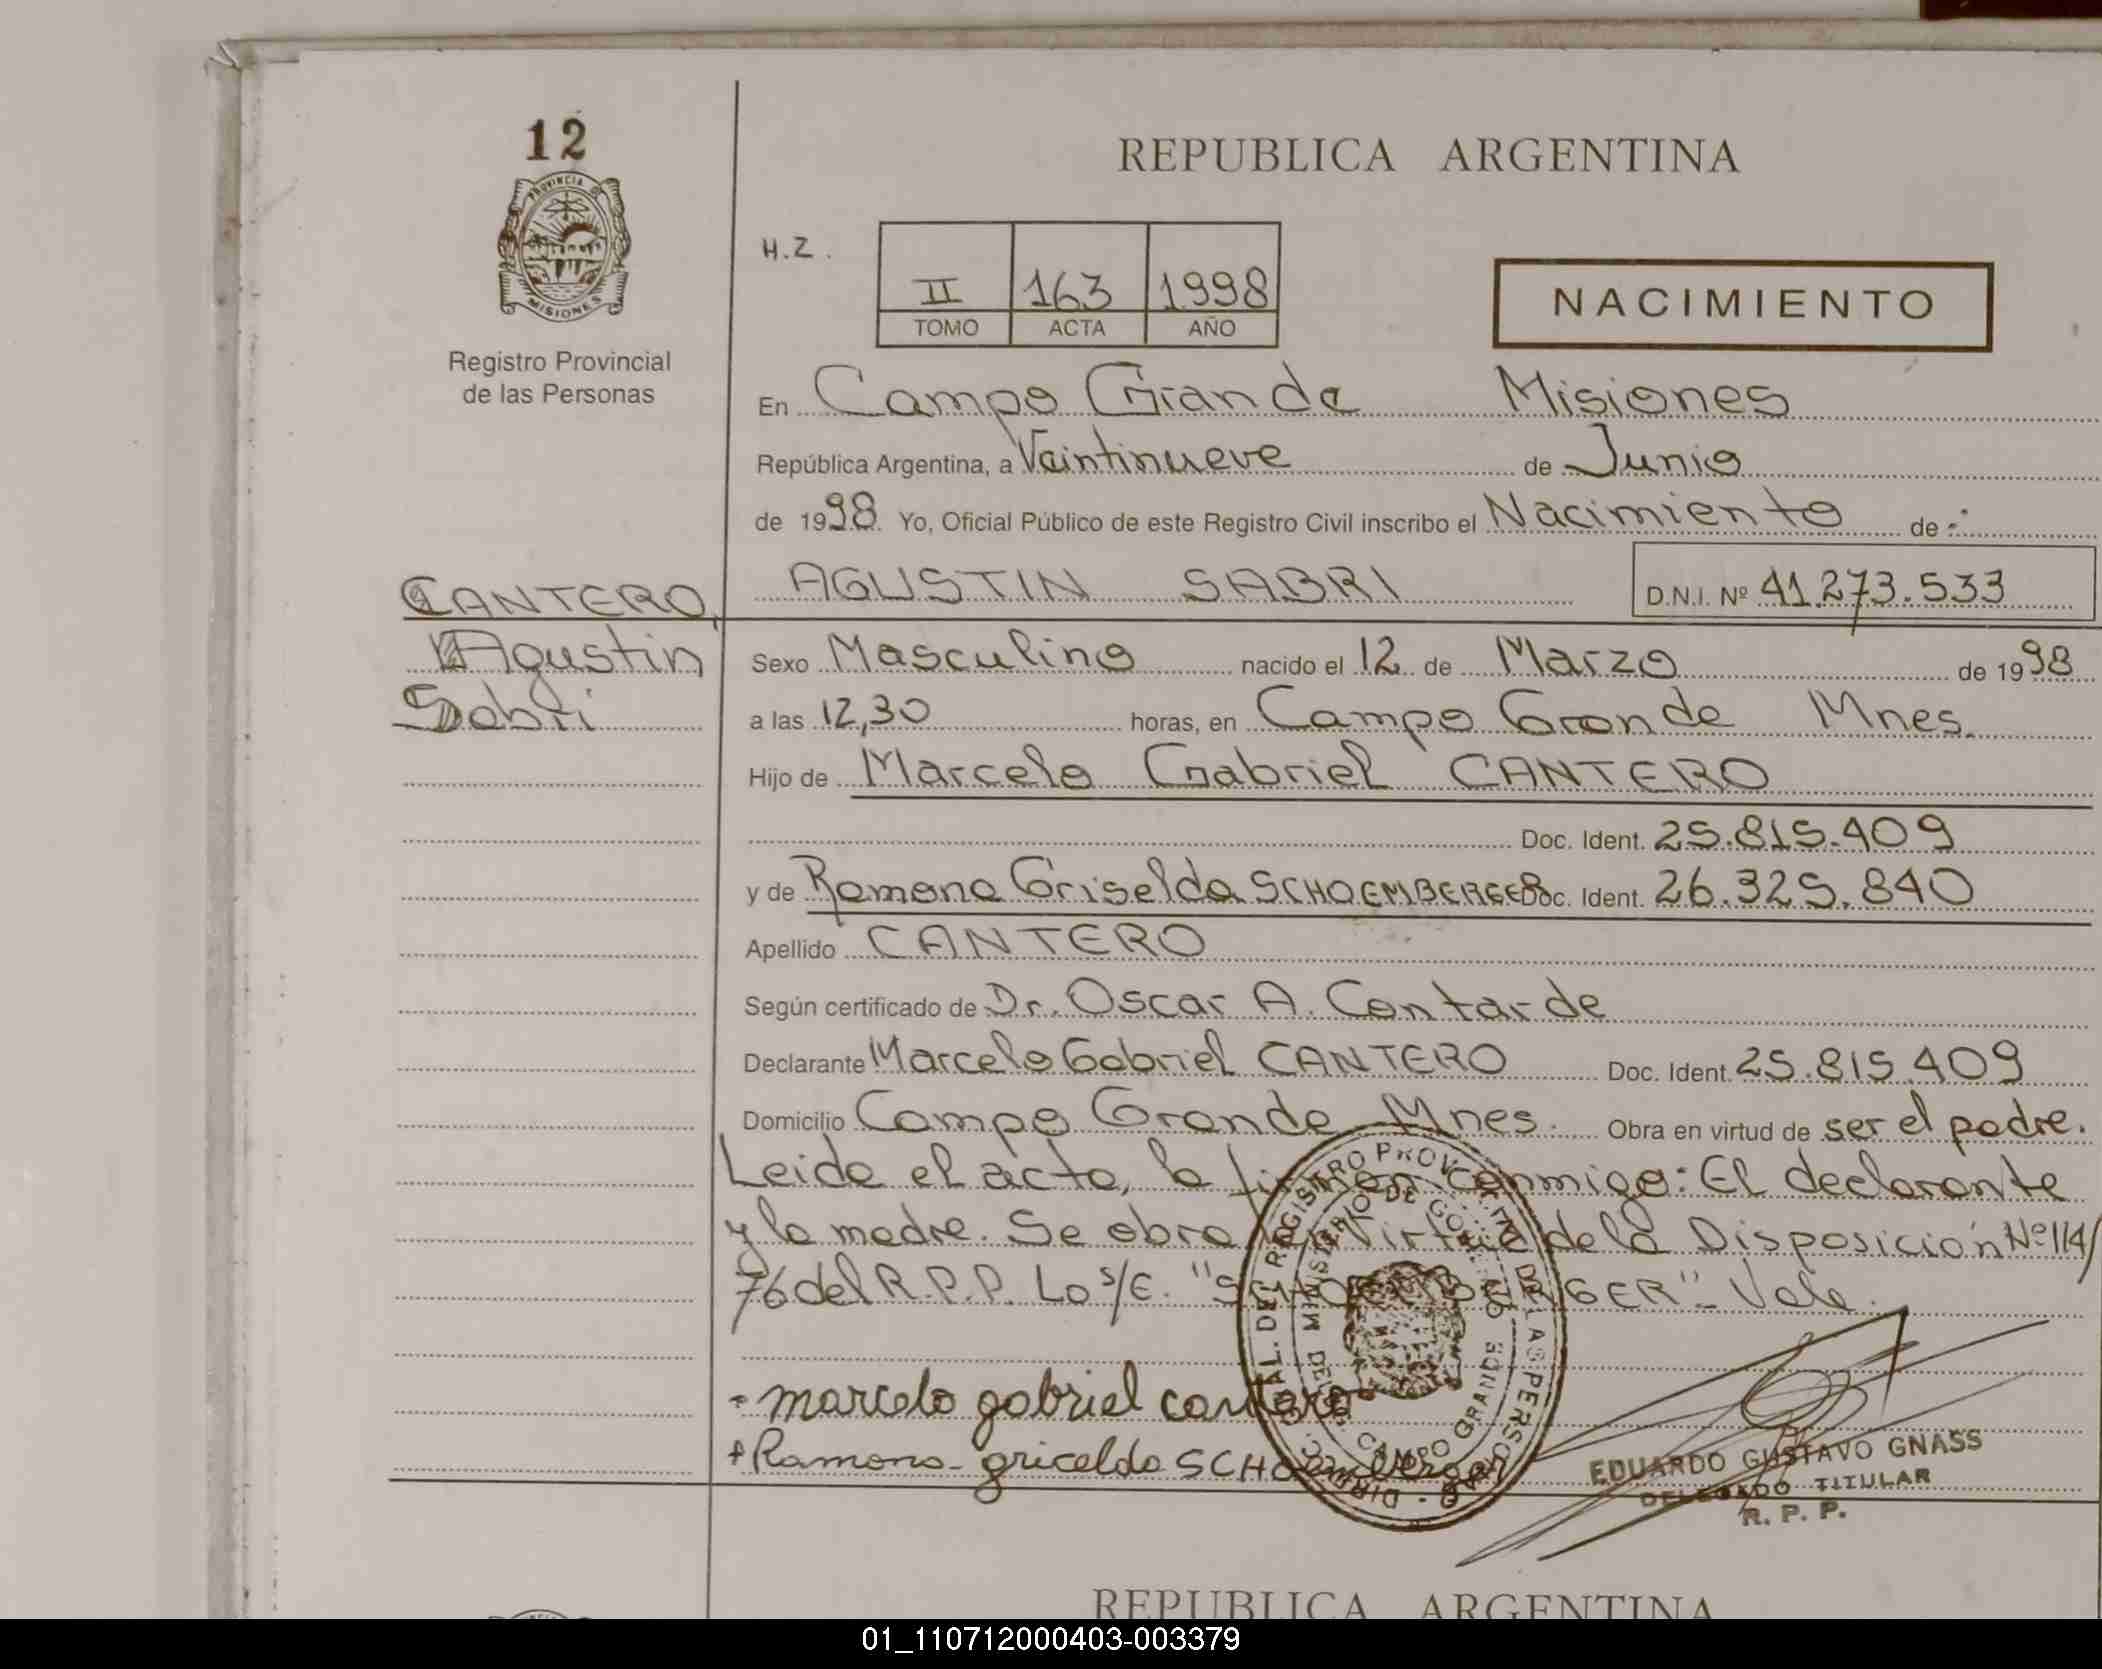 12
PROVINCIA DE
MISIONES
Registro Provincial
de las Personas
CANTERO,
Agustin
Sabri
REPUBLICA ARGENTINA
H.Z.
II 163 1998
TOMO ACTA AÑO
NACIMIENTO
En Campo Grande Misiones
República Argentina, a Veintinueve de Junio
de 1998. Yo, Oficial Público de este Registro Civil inscribo el Nacimiento de -:
AGUSTIN SABRI D.N.I. Nº 41.273.533
Sexo Masculino nacido el 12 de Marzo de 1998
a las 12,30 horas, en Campo Grande Mnes.
Hijo de Marcelo Gabriel CANTERO
Doc. Ident. 25.815.409
y de Ramona Griselda SCHOEMBERGER Doc. Ident. 26.325.840
Apellido CANTERO
Según certificado de Dr. Oscar A. Contarde
Declarante Marcelo Gabriel CANTERO Doc. Ident. 25.815.409
Domicilio Campo Grande Mnes. Obra en virtud de ser el padre.
Leida el acta, la firman conmigo: El declarante
y la madre. Se obra en Virtud de la Disposición Nº 114/
76 del R.P.P. Lo s/E. "SCHOEMBERGER" - Vale.
marcelo gabriel cantero
Ramona griselda SCHOEMberger
DIREC. GRAL. DEL REGISTRO PROVINCIAL DE LAS PERSONAS
MINISTERIO DE GOBIERNO
CAMPO GRANDE
EDUARDO GUSTAVO GNASS
DELEGADO TITULAR
R. P. P.
REPUBLICA ARGENTINA
01_110712000403-003379